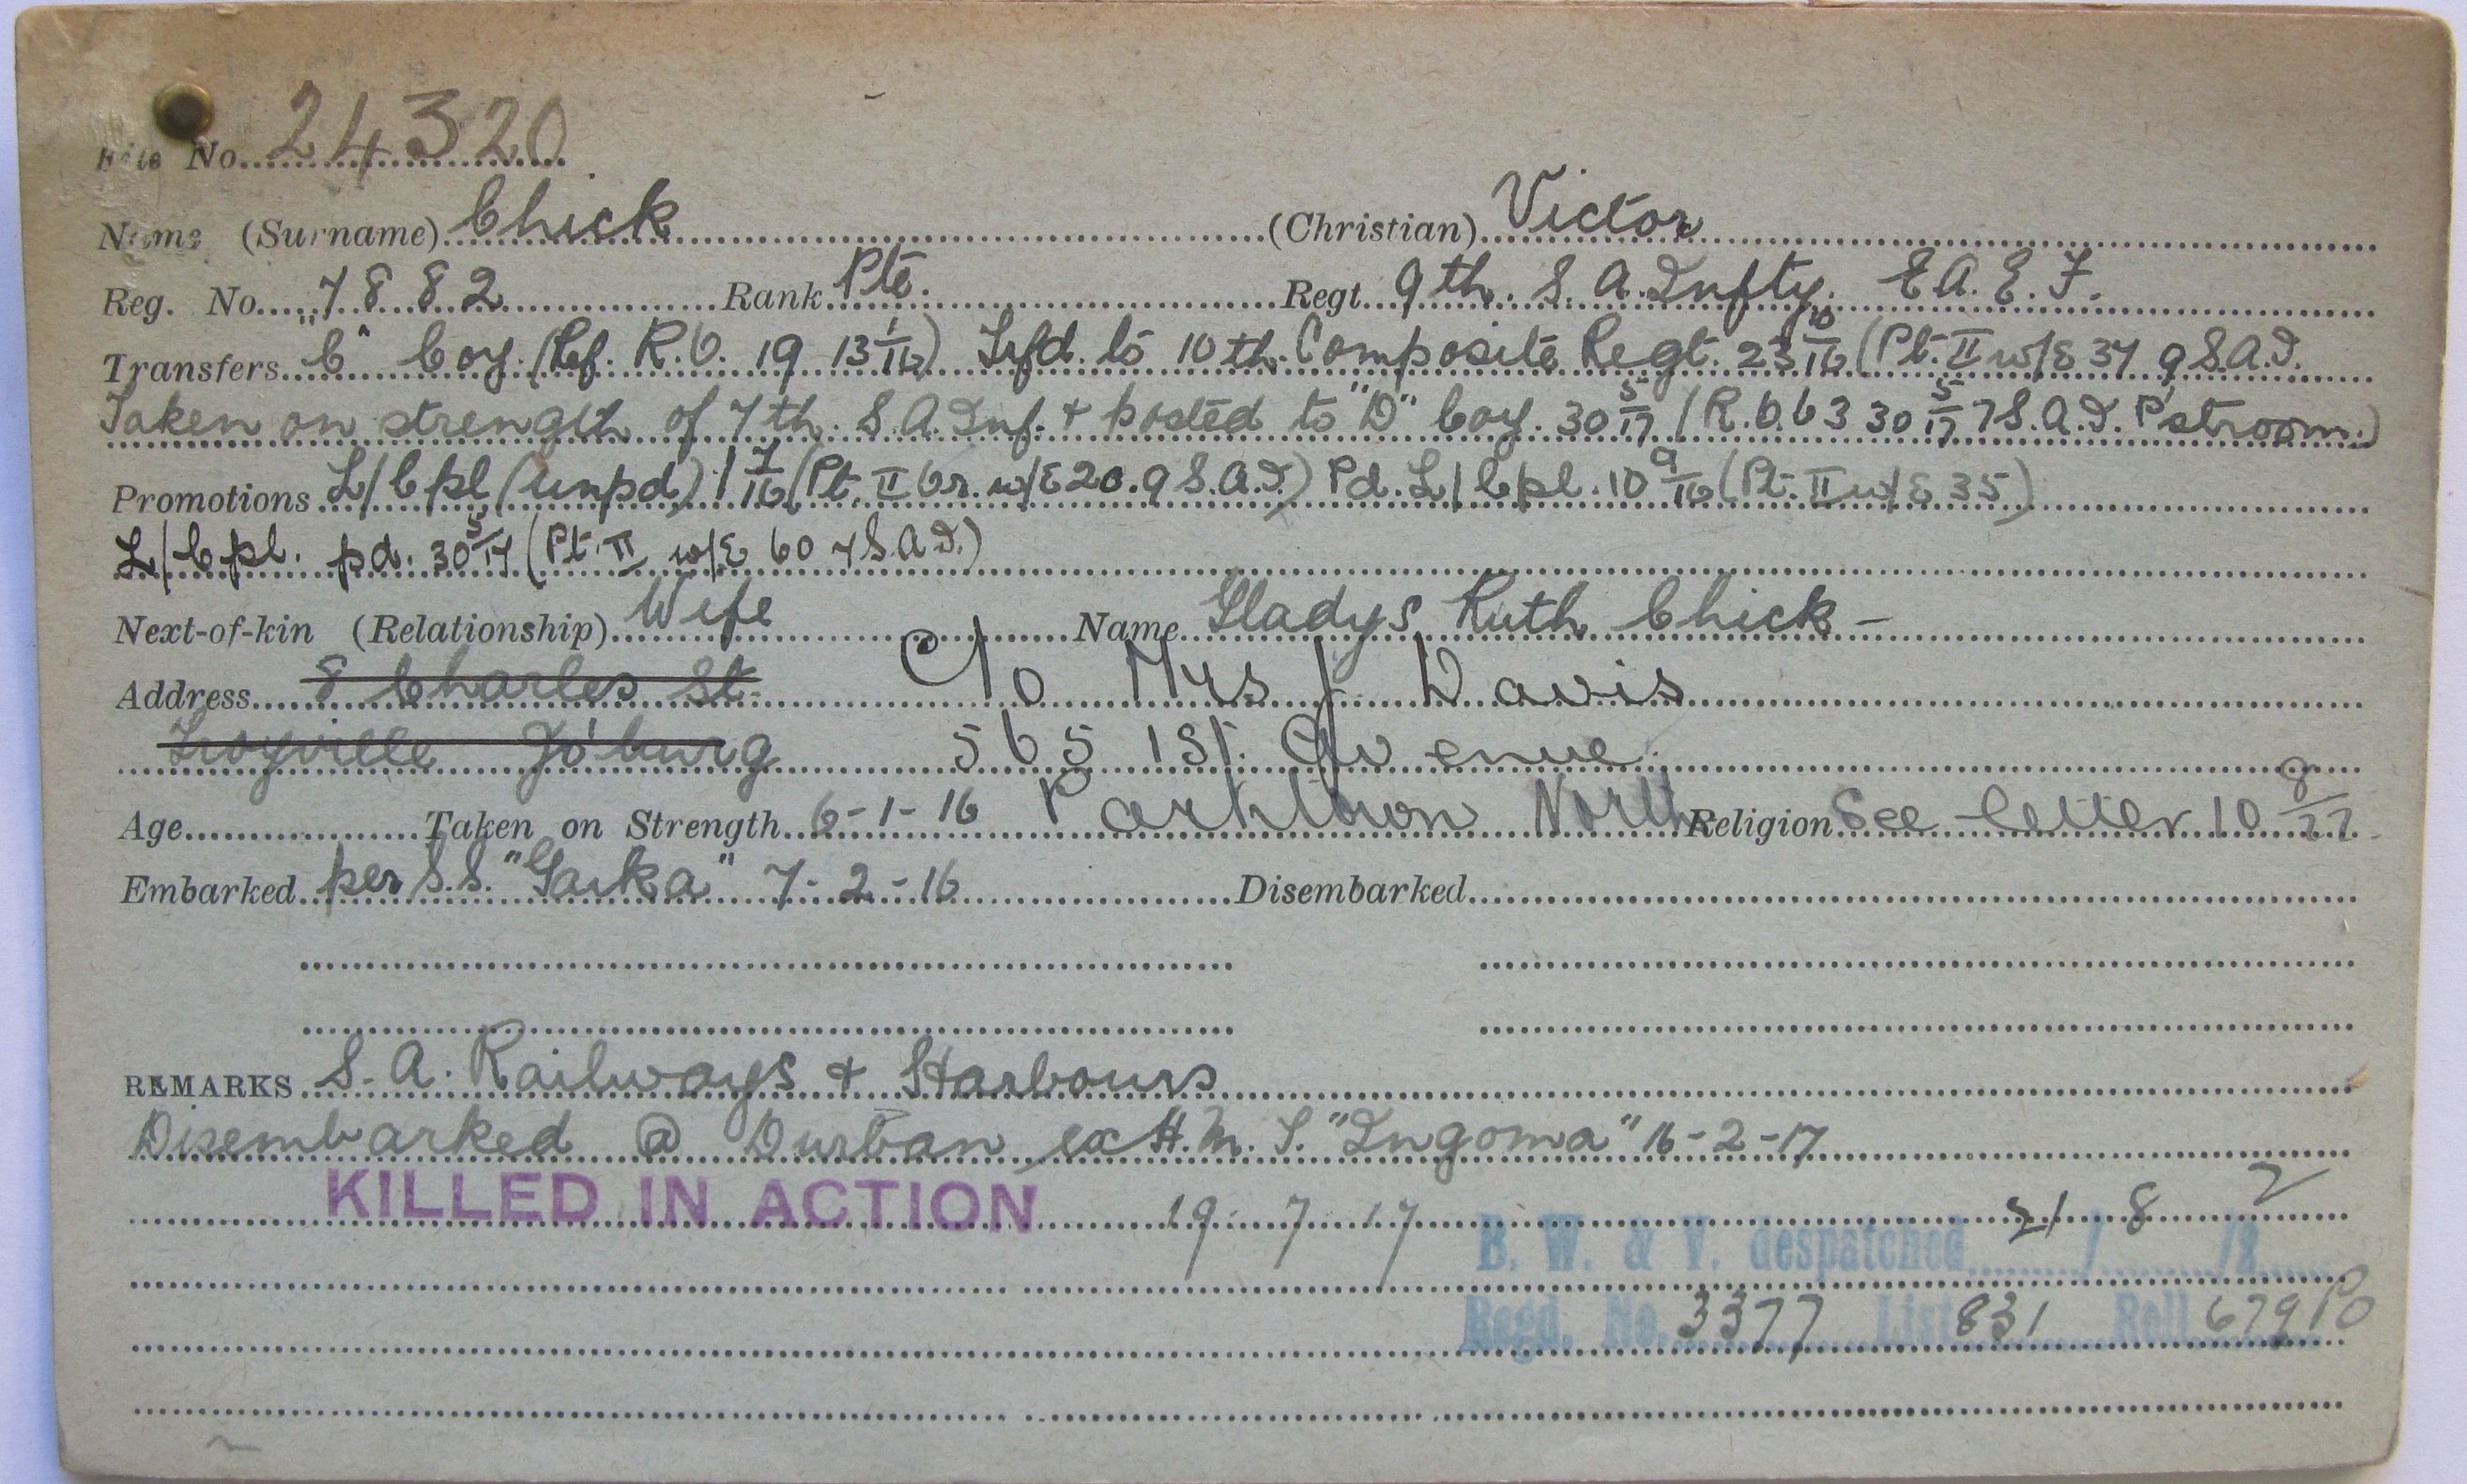 File No. 24320
Name (Surname) Chick (Christian) Victor
Reg. No. 7882 Rank Pte. Regt. 9th. S. A. Infty. E A. E. F.
Transfers "C" Coy. (Cf. R.O. 19 13 1/16) Trfd. to 10th. Composite Regt. 23 10/16 (Pt. II w/E 37 9 S.A.I.
Taken on strength of 7th. S. A. Inf. + posted to "D" Coy. 30 5/17 (R.O. 63 30 5/17 7 S.A.I. P'stroom.)
Promotions L/Cpl (unpd) 1 7/16 (Pt. II Or. w/E 20. 9 S.A.I) Pd. L/Cpl. 10 9/16 (Pt. II w/E 35)
L/Cpl. pd. 30 5/17 (Pt. II w/E 60 7 S A I.)
Next-of-kin (Relationship) Wife Name Gladys Ruth Chick -
Address 8 Charles St. C/o Mrs J. Davis
Troyville Jo'burg 565 1st. Avenue.
Age Taken on Strength 6-1-16 Parktown North Religion See letter 10 8/22.
Embarked per S.S. "Gaika" 7-2-16 Disembarked
REMARKS S. A. Railways & Harbours
Disembarked @ Durban ex H. M. T. "Ingoma" 16-2-17
KILLED IN ACTION 19. 7. 17 21 8 2
B. W. & V. despatched / /2
Regd. No. 3377 List 831 Roll 679 PO